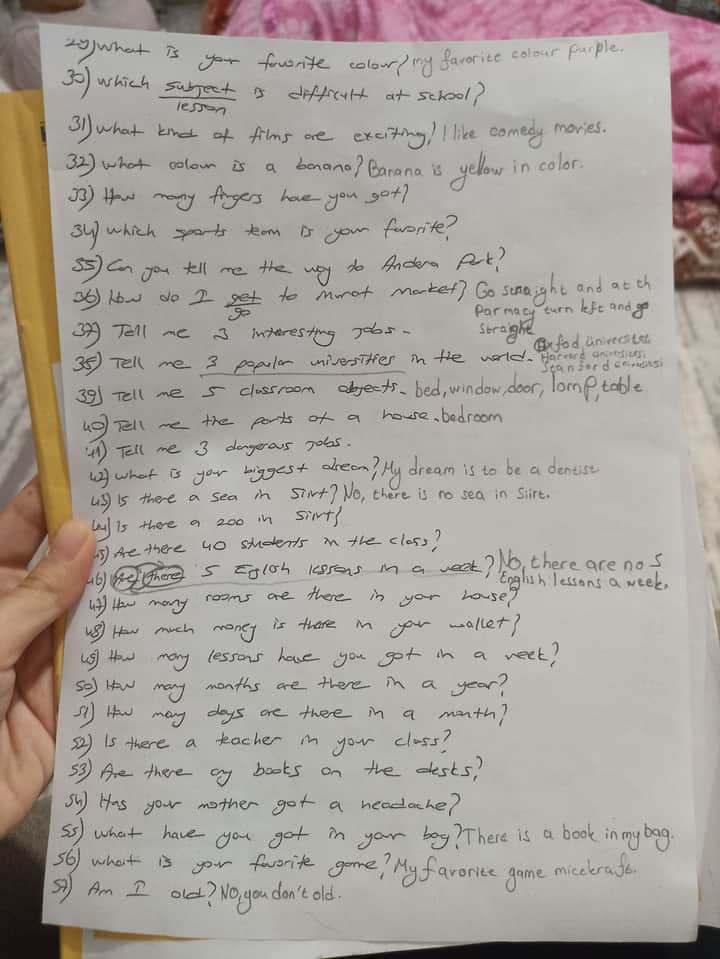 29) What is your favorite colour? My favorite colour purple.
30) Which subject is difficult at school?
lesson
31) What kind of films are exciting? I like comedy movies.
32) What colour is a banana? Banana is yellow in color.
33) How many fingers have you got?
34) Which sports team is your favorite?
35) Can you tell me the way to Andera Park?
36) How do I get to Murat Market? Go straight and at th
go
Parmacy turn left and go
straight
37) Tell me 3 interesting jobs.
Oxfod, üniversites
38) Tell me 3 popular universities in the world. Harvard
39) Tell me 5 classroom objects. bed, window, door, lomp, table
40) Tell me the parts of a house. bedroom
41) Tell me 3 dangerous jobs.
42) What is your biggest dream? My dream is to be a dentist.
43) Is there a sea in Siirt? No, there is no sea in Siirt.
44) Is there a zoo in Siirt?
45) Are there 40 students in the class?
46) Are there 5 Eglish lessons in a week? No, there are no 5
English lessons a week.
47) How many rooms are there in your house?
48) How much money is there in your wallet?
49) How many lessons have you got in a week?
50) How many months are there in a year?
51) How many days are there in a month?
52) Is there a teacher in your class?
53) Are there any books on the desks?
54) Has your mother got a headache?
55) What have you got in your bag? There is a book in my bag.
56) What is your favorite game? My favorite game micekraft.
57) Am I old? No, you don't old.